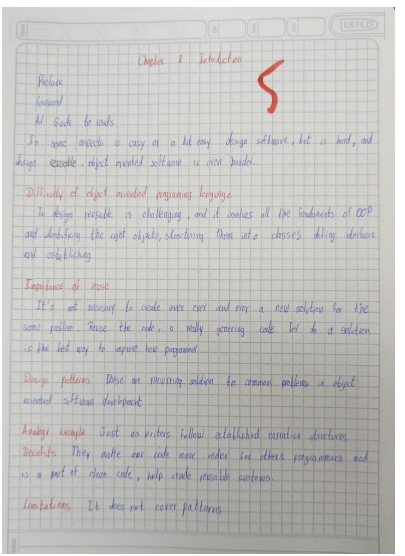 ESTILO
Chapter 1 Introduction
5
Preface
Foward
A Guide to reads
In some aspects is easy or a bit easy design software, but is hard, and
design reusable object oriented software is even harder.
Difficulty of object oriented programing language
To design reusable is challenging, and it involves all the fundaments of OOP
and identifying the right objects, structuring them into classes defing interfaces
and establishing
Importance of reuse
It's not necesary to create over ever and ever a new solution for the
same problem. Reuse the code, a really genering code for do a solution
is the best way to improve how programmer
Design patterns These are recurring solution to common problems in object
oriented software development
Analogy example Just as writers follow established narrative structures
Benefits They make our code more reder for others programmers and
is a part of clean code, help create reusable systems.
Limitations It does not cover patterns